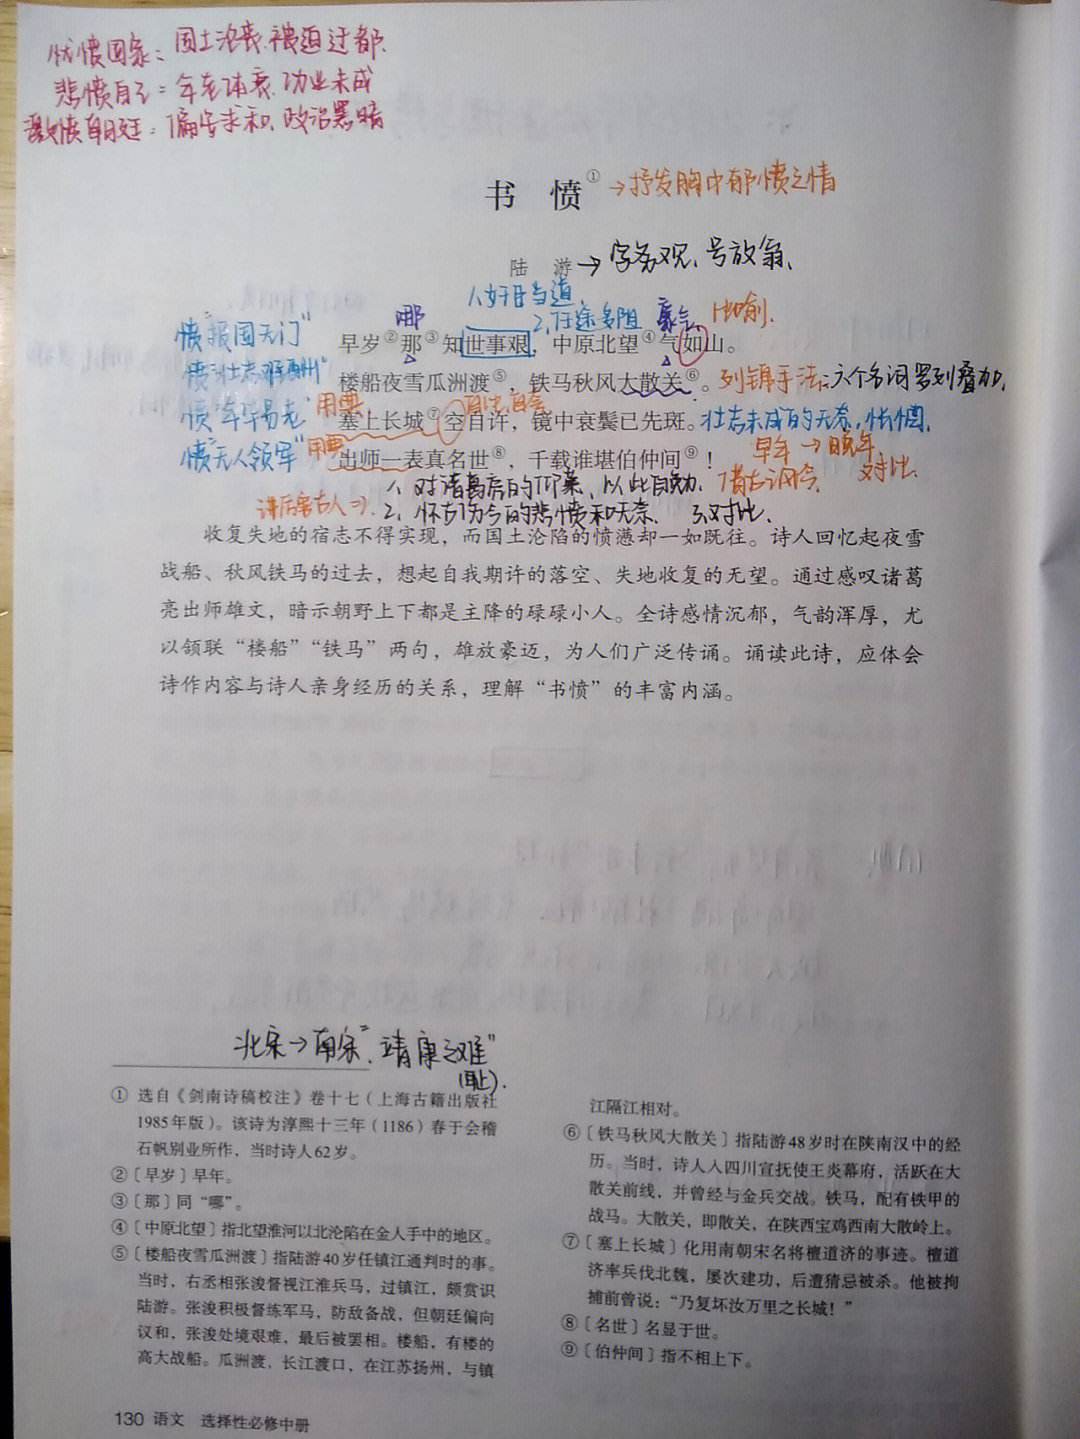 忧愤国家：国土沦丧、被迫迁都、
悲愤自己：年老体衰、功业未成
激愤朝廷：偏安求和、政治黑暗
书 愤① →抒发胸中郁愤之情
陆 游→字务观、号放翁、
1、奸臣当道
哪 2、仕途多阻 豪气 比喻、
愤“报国无门” 早岁②那③知世事艰，中原北望④气如山。
愤“壮志难酬” 楼船夜雪瓜洲渡⑤，铁马秋风大散关⑥。列锦手法：六个名词罗列叠加，
愤“年华易老” 用典 塞上长城⑦空自许，镜中衰鬓已先斑。壮志未成的无奈，怅惘、
愤“无人领军” 用典 出师一表真名世⑧，千载谁堪伯仲间⑨！ 早年→晚年 对比、
1、对诸葛亮的仰慕、以此自勉、借古讽今、
2、怀古伤今的悲愤和无奈、 3、对比、
收复失地的宿志不得实现，而国土沦陷的愤懑却一如既往。诗人回忆起夜雪
战船、秋风铁马的过去，想起自我期许的落空、失地收复的无望。通过感叹诸葛
亮出师雄文，暗示朝野上下都是主降的碌碌小人。全诗感情沉郁，气韵浑厚，尤
以颔联“楼船”“铁马”两句，雄放豪迈，为人们广泛传诵。诵读此诗，应体会
诗作内容与诗人亲身经历的关系，理解“书愤”的丰富内涵。
北宋→南宋“靖康之难”
(耻)、
① 选自《剑南诗稿校注》卷十七（上海古籍出版社
1985年版）。该诗为淳熙十三年（1186）春于会稽
石帆别业所作，当时诗人62岁。
②〔早岁〕早年。
③〔那〕同“哪”。
④〔中原北望〕指北望淮河以北沦陷在金人手中的地区。
⑤〔楼船夜雪瓜洲渡〕指陆游40岁任镇江通判时的事。
当时，右丞相张浚督视江淮兵马，过镇江，颇赏识
陆游。张浚积极督练军马，防敌备战，但朝廷偏向
议和，张浚处境艰难，最后被罢相。楼船，有楼的
高大战船。瓜洲渡，长江渡口，在江苏扬州，与镇
江隔江相对。
⑥〔铁马秋风大散关〕指陆游48岁时在陕南汉中的经
历。当时，诗人入四川宣抚使王炎幕府，活跃在大
散关前线，并曾经与金兵交战。铁马，配有铁甲的
战马。大散关，即散关，在陕西宝鸡西南大散岭上。
⑦〔塞上长城〕化用南朝宋名将檀道济的事迹。檀道
济率兵伐北魏，屡次建功，后遭猜忌被杀。他被拘
捕前曾说：“乃复坏汝万里之长城！”
⑧〔名世〕名显于世。
⑨〔伯仲间〕指不相上下。
130 语文 选择性必修中册